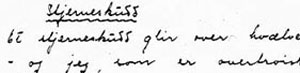 Stjerneskudd
Et stjerneskudd glir over hvælve
- og jeg, som er overtrois